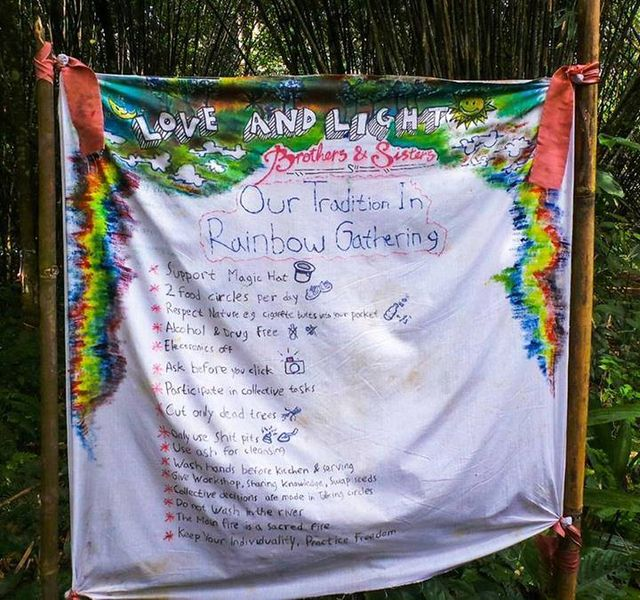 LOVE AND LIGHT
Brothers & Sisters
Our Tradition In
Rainbow Gathering
* Support Magic Hat
* 2 Food circles per day
* Respect Nature e.g cigarette butts into your pocket
* Alcohol & Drug Free
* Electronics off
* Ask before you click
* Participate in collective tasks
* Cut only dead trees
* Only use Shit pits
* Use ash for cleansing
* Wash hands before kitchen & serving
* Give Workshop, Sharing knowledge, Swap seeds
* Collective decisions are made in Talking circles
* Do not Wash in the river
* The Main fire is a Sacred fire
* Keep Your Individuality, Practice Freedom